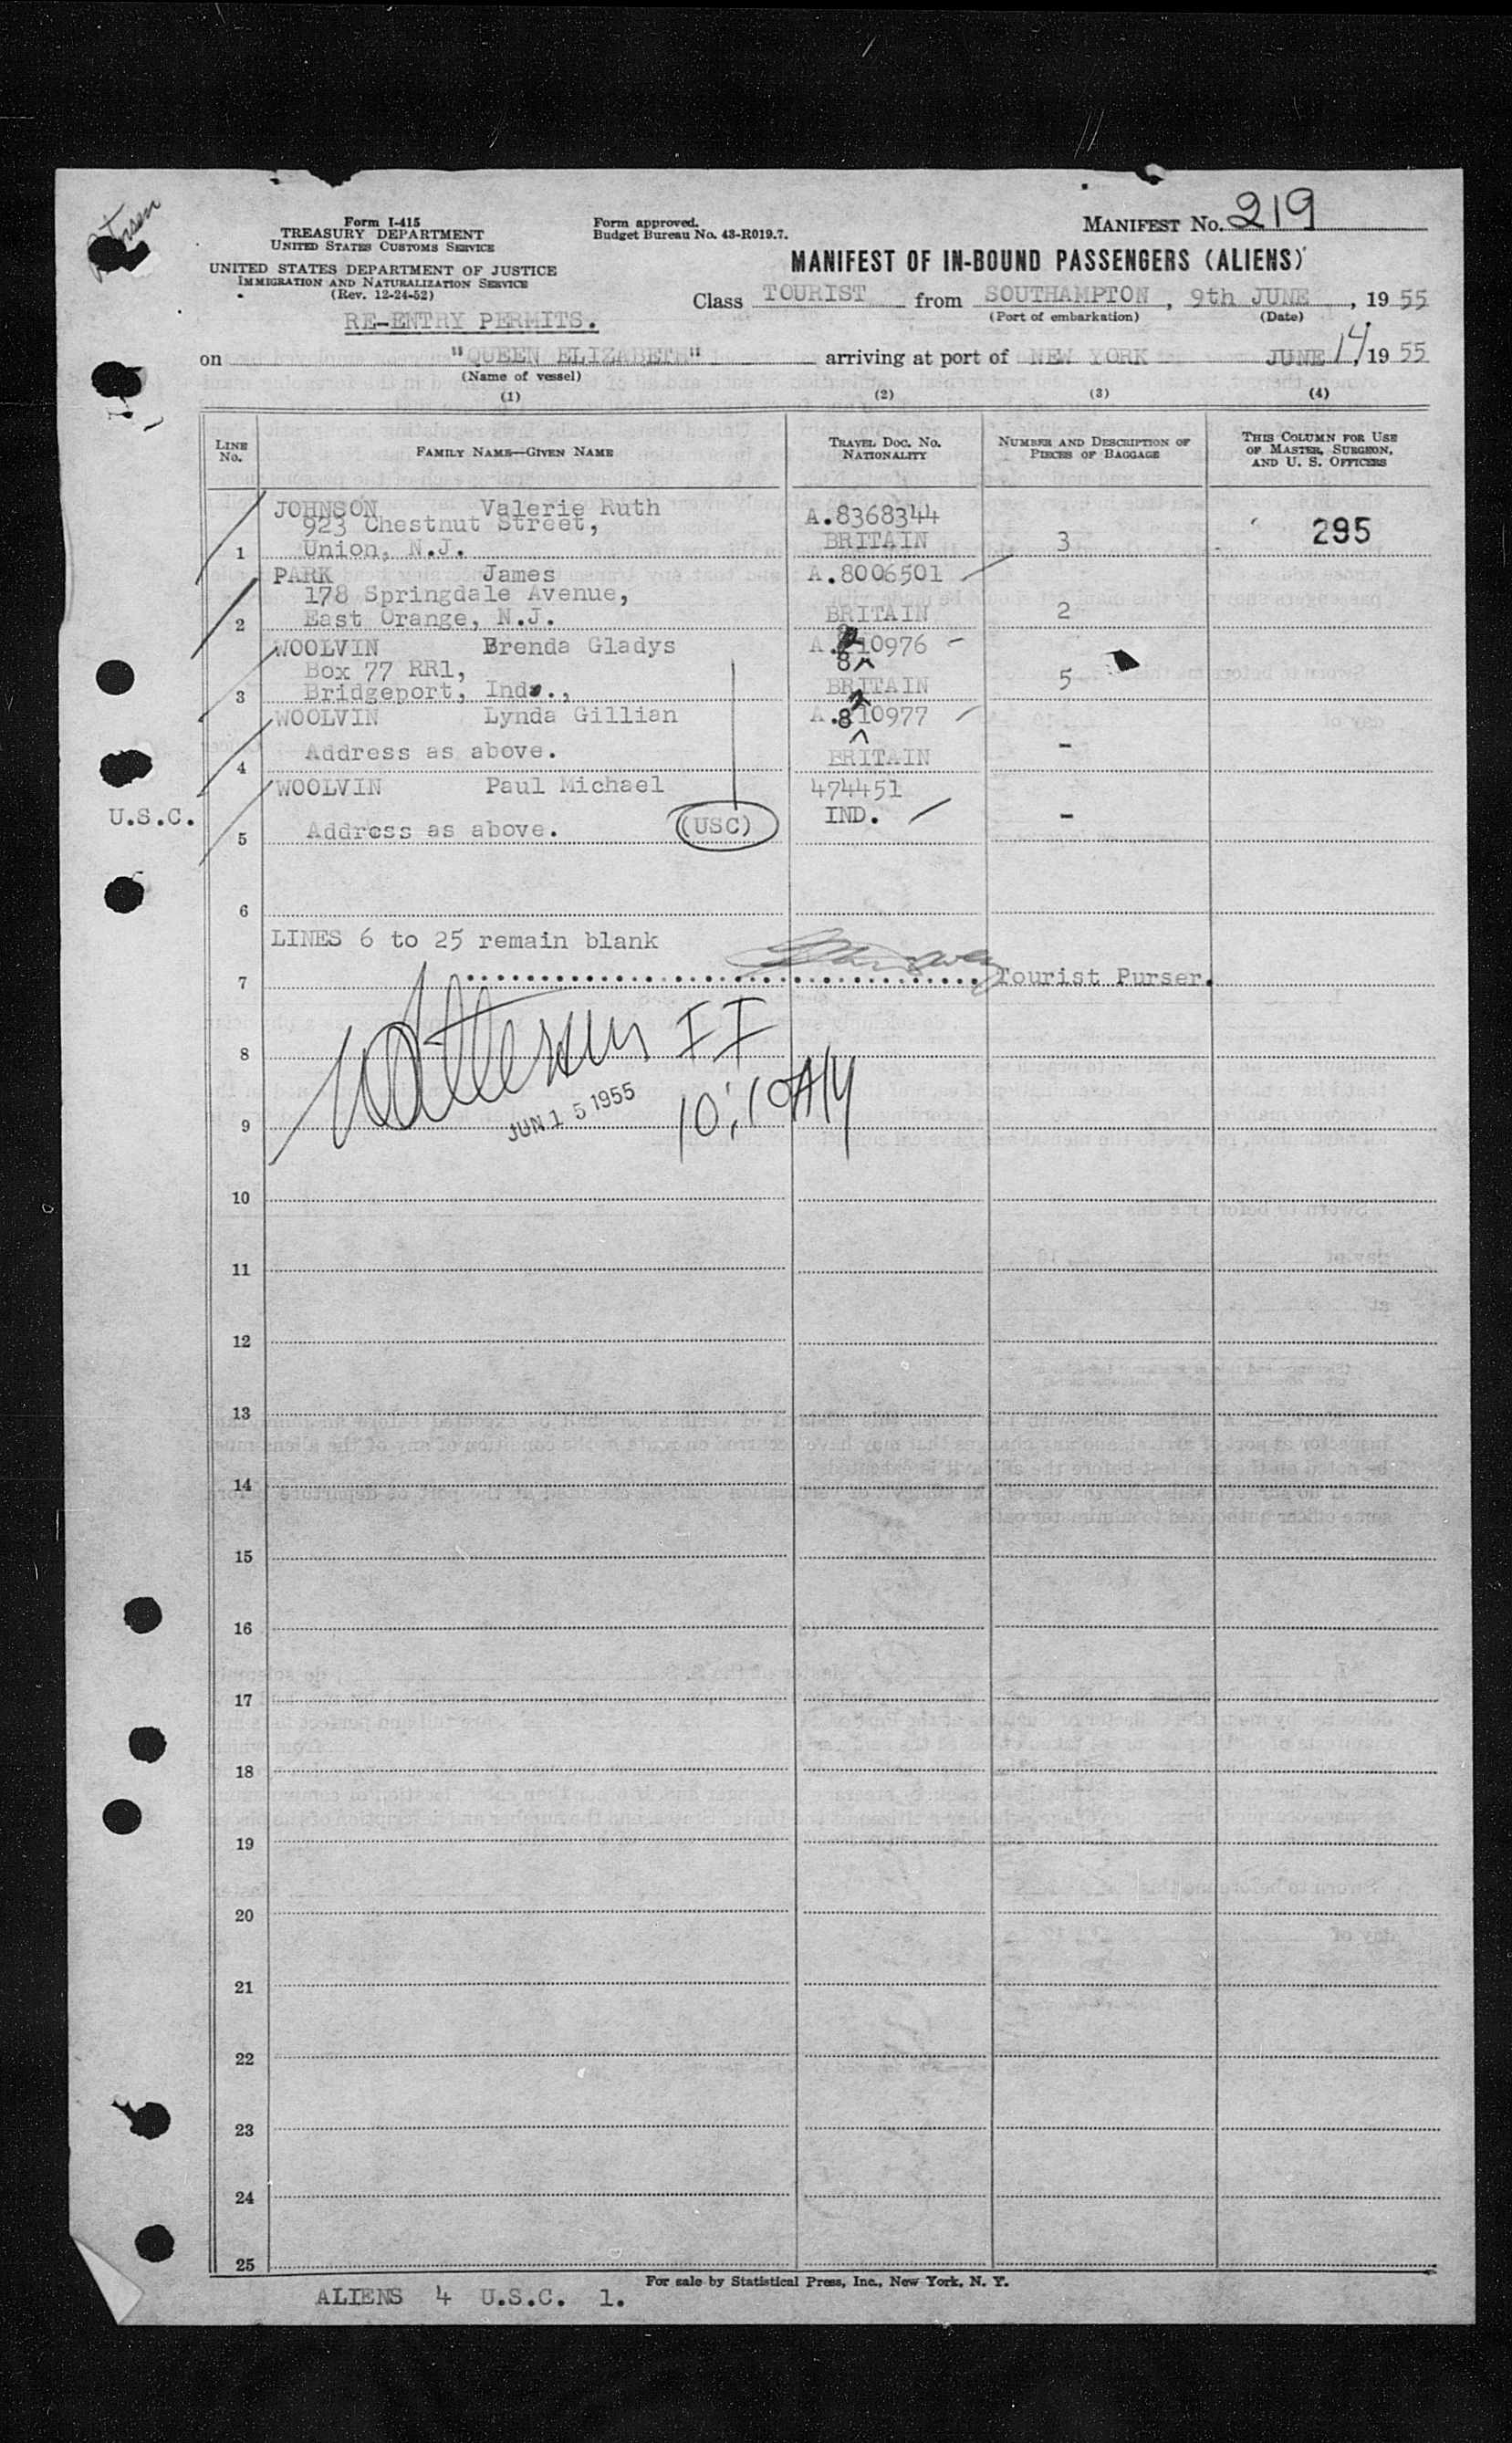 MANIFEST No. 219
Form I-415
TREASURY DEPARTMENT
UNITED STATES CUSTOMS SERVICE
Form approved.
Budget Bureau No. 43-R019.7.
UNITED STATES DEPARTMENT OF JUSTICE
IMMIGRATION AND NATURALIZATION SERVICE
(Rev. 12-24-52)
RE-ENTRY PERMITS.
MANIFEST OF IN-BOUND PASSENGERS (ALIENS)
Class TOURIST from SOUTHAMPTON, 9th JUNE, 19 55
(Port of embarkation) (Date)
on "QUEEN ELIZABETH" arriving at port of NEW YORK JUNE 14, 19 55
(Name of vessel)
(1) (2) (3) (4)
LINE No.
FAMILY NAME—GIVEN NAME
TRAVEL DOC. NO. NATIONALITY
NUMBER AND DESCRIPTION OF PIECES OF BAGGAGE
THIS COLUMN FOR USE OF MASTER, SURGEON, AND U. S. OFFICERS
JOHNSON Valerie Ruth A.8368344
923 Chestnut Street, 295
1 Union, N.J. BRITAIN 3
PARK James A.8006501
178 Springdale Avenue,
2 East Orange, N.J. BRITAIN 2
WOOLVIN Brenda Gladys A. 10976
8
Box 77 RR1,
3 Bridgeport, Ind., BRITAIN 5
WOOLVIN Lynda Gillian A.8 10977
Address as above. -
4 BRITAIN
WOOLVIN Paul Michael 474451
U.S.C. IND. -
5 Address as above. (USC)
6
LINES 6 to 25 remain blank
7 Tourist Purser.
II
8
JUN 15 1955 10:10AM
9
10
11
12
13
14
15
16
17
18
19
20
21
22
23
24
25
For sale by Statistical Press, Inc., New York, N. Y.
ALIENS 4 U.S.C. 1.